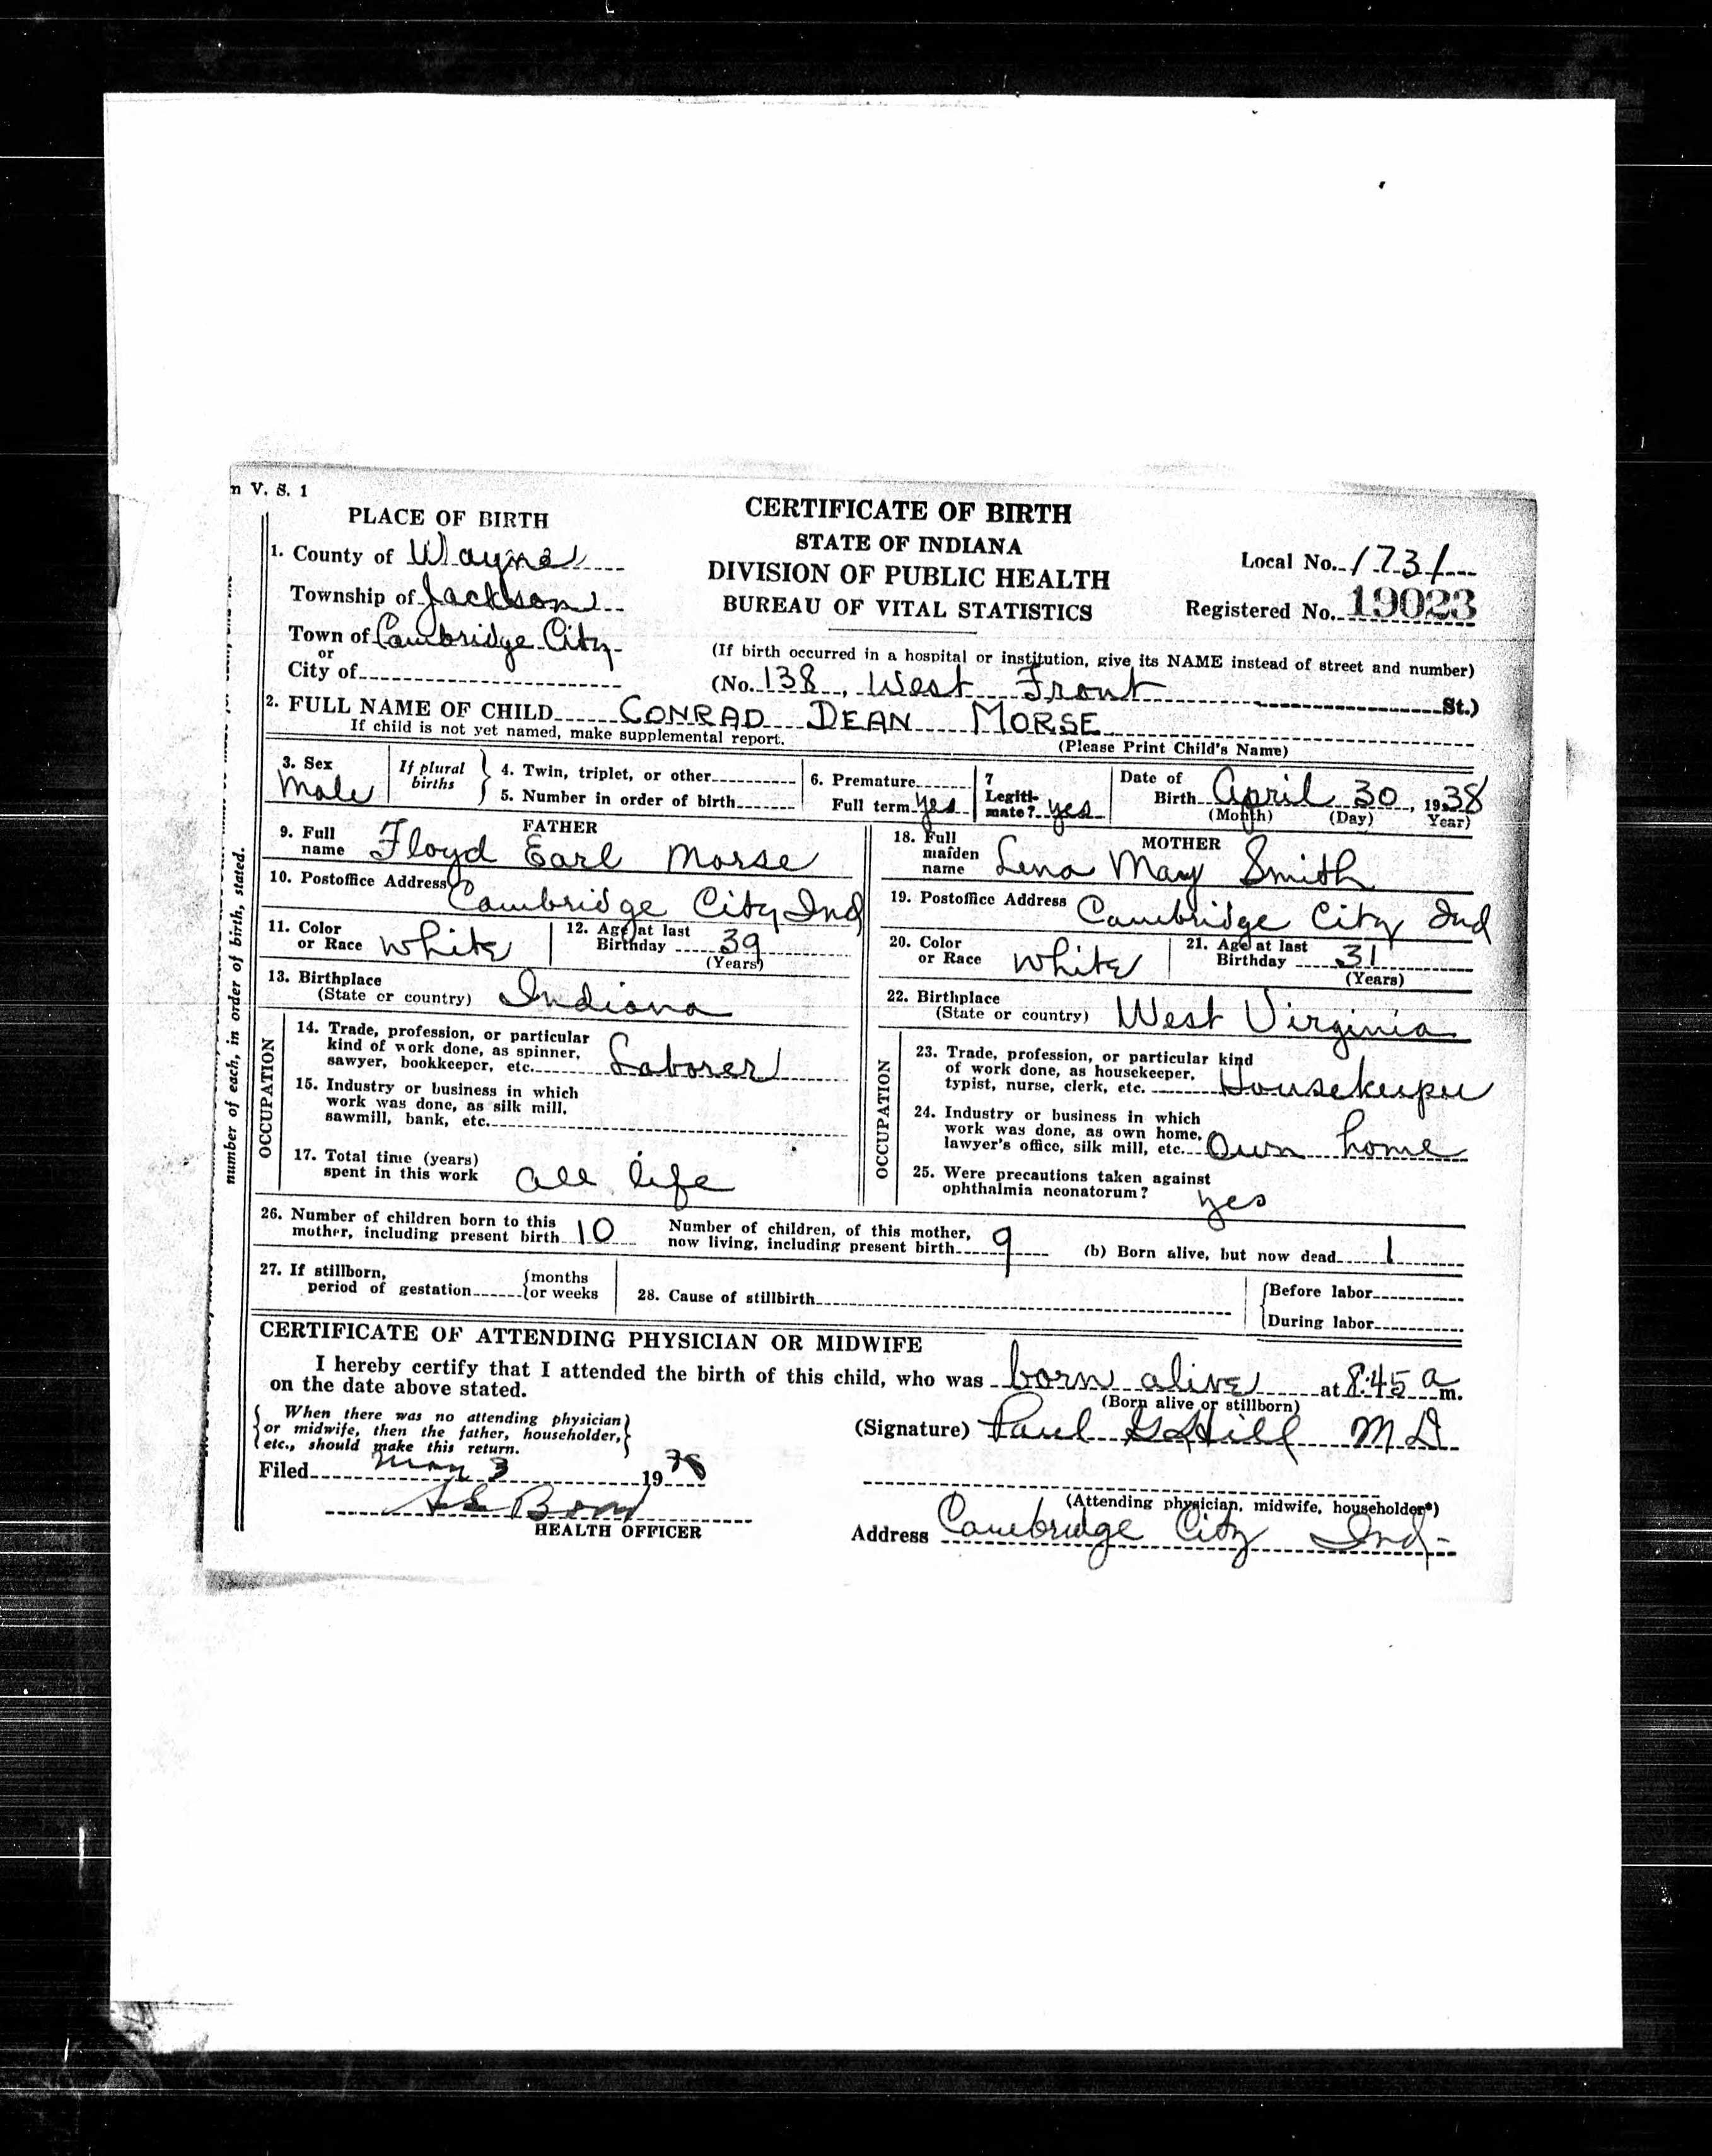 n V. S. 1
PLACE OF BIRTH
1. County of Wayne
Township of Jackson
Town of Cambridge City
or
City of
CERTIFICATE OF BIRTH
STATE OF INDIANA
DIVISION OF PUBLIC HEALTH
BUREAU OF VITAL STATISTICS
Local No. 1731
Registered No. 19023
(If birth occurred in a hospital or institution, give its NAME instead of street and number)
(No. 138, West Front St.)
2. FULL NAME OF CHILD CONRAD DEAN MORSE
If child is not yet named, make supplemental report.
(Please Print Child's Name)
3. Sex
Male
If plural births
4. Twin, triplet, or other
5. Number in order of birth
6. Premature
Full term yes
7
Legiti-
mate? yes
Date of
Birth April 30, 1938
(Month) (Day) Year)
FATHER
9. Full
name Floyd Earl Morse
10. Postoffice Address
Cambridge City Ind
11. Color
or Race White
12. Age at last
Birthday 39
(Years)
13. Birthplace
(State or country) Indiana
OCCUPATION
14. Trade, profession, or particular
kind of work done, as spinner,
sawyer, bookkeeper, etc. Laborer
15. Industry or business in which
work was done, as silk mill,
sawmill, bank, etc.
17. Total time (years)
spent in this work all life
MOTHER
18. Full
maiden
name Lena May Smith
19. Postoffice Address Cambridge City Ind
20. Color
or Race White
21. Age at last
Birthday 31
(Years)
22. Birthplace
(State or country) West Virginia
OCCUPATION
23. Trade, profession, or particular kind
of work done, as housekeeper,
typist, nurse, clerk, etc. Housekeeper
24. Industry or business in which
work was done, as own home,
lawyer's office, silk mill, etc. Own home
25. Were precautions taken against
ophthalmia neonatorum? yes
26. Number of children born to this
mother, including present birth 10
Number of children, of this mother,
now living, including present birth 9
(b) Born alive, but now dead 1
27. If stillborn,
period of gestation
months
or weeks
28. Cause of stillbirth
Before labor
During labor
CERTIFICATE OF ATTENDING PHYSICIAN OR MIDWIFE
I hereby certify that I attended the birth of this child, who was born alive at 8:45 a m.
on the date above stated.
(Born alive or stillborn)
When there was no attending physician
or midwife, then the father, householder,
etc., should make this return.
(Signature) Paul G Hill M D
Filed May 3 1938
(Attending physician, midwife, householder*)
HEALTH OFFICER
Address Cambridge City Ind-
number of each, in order of birth, stated.